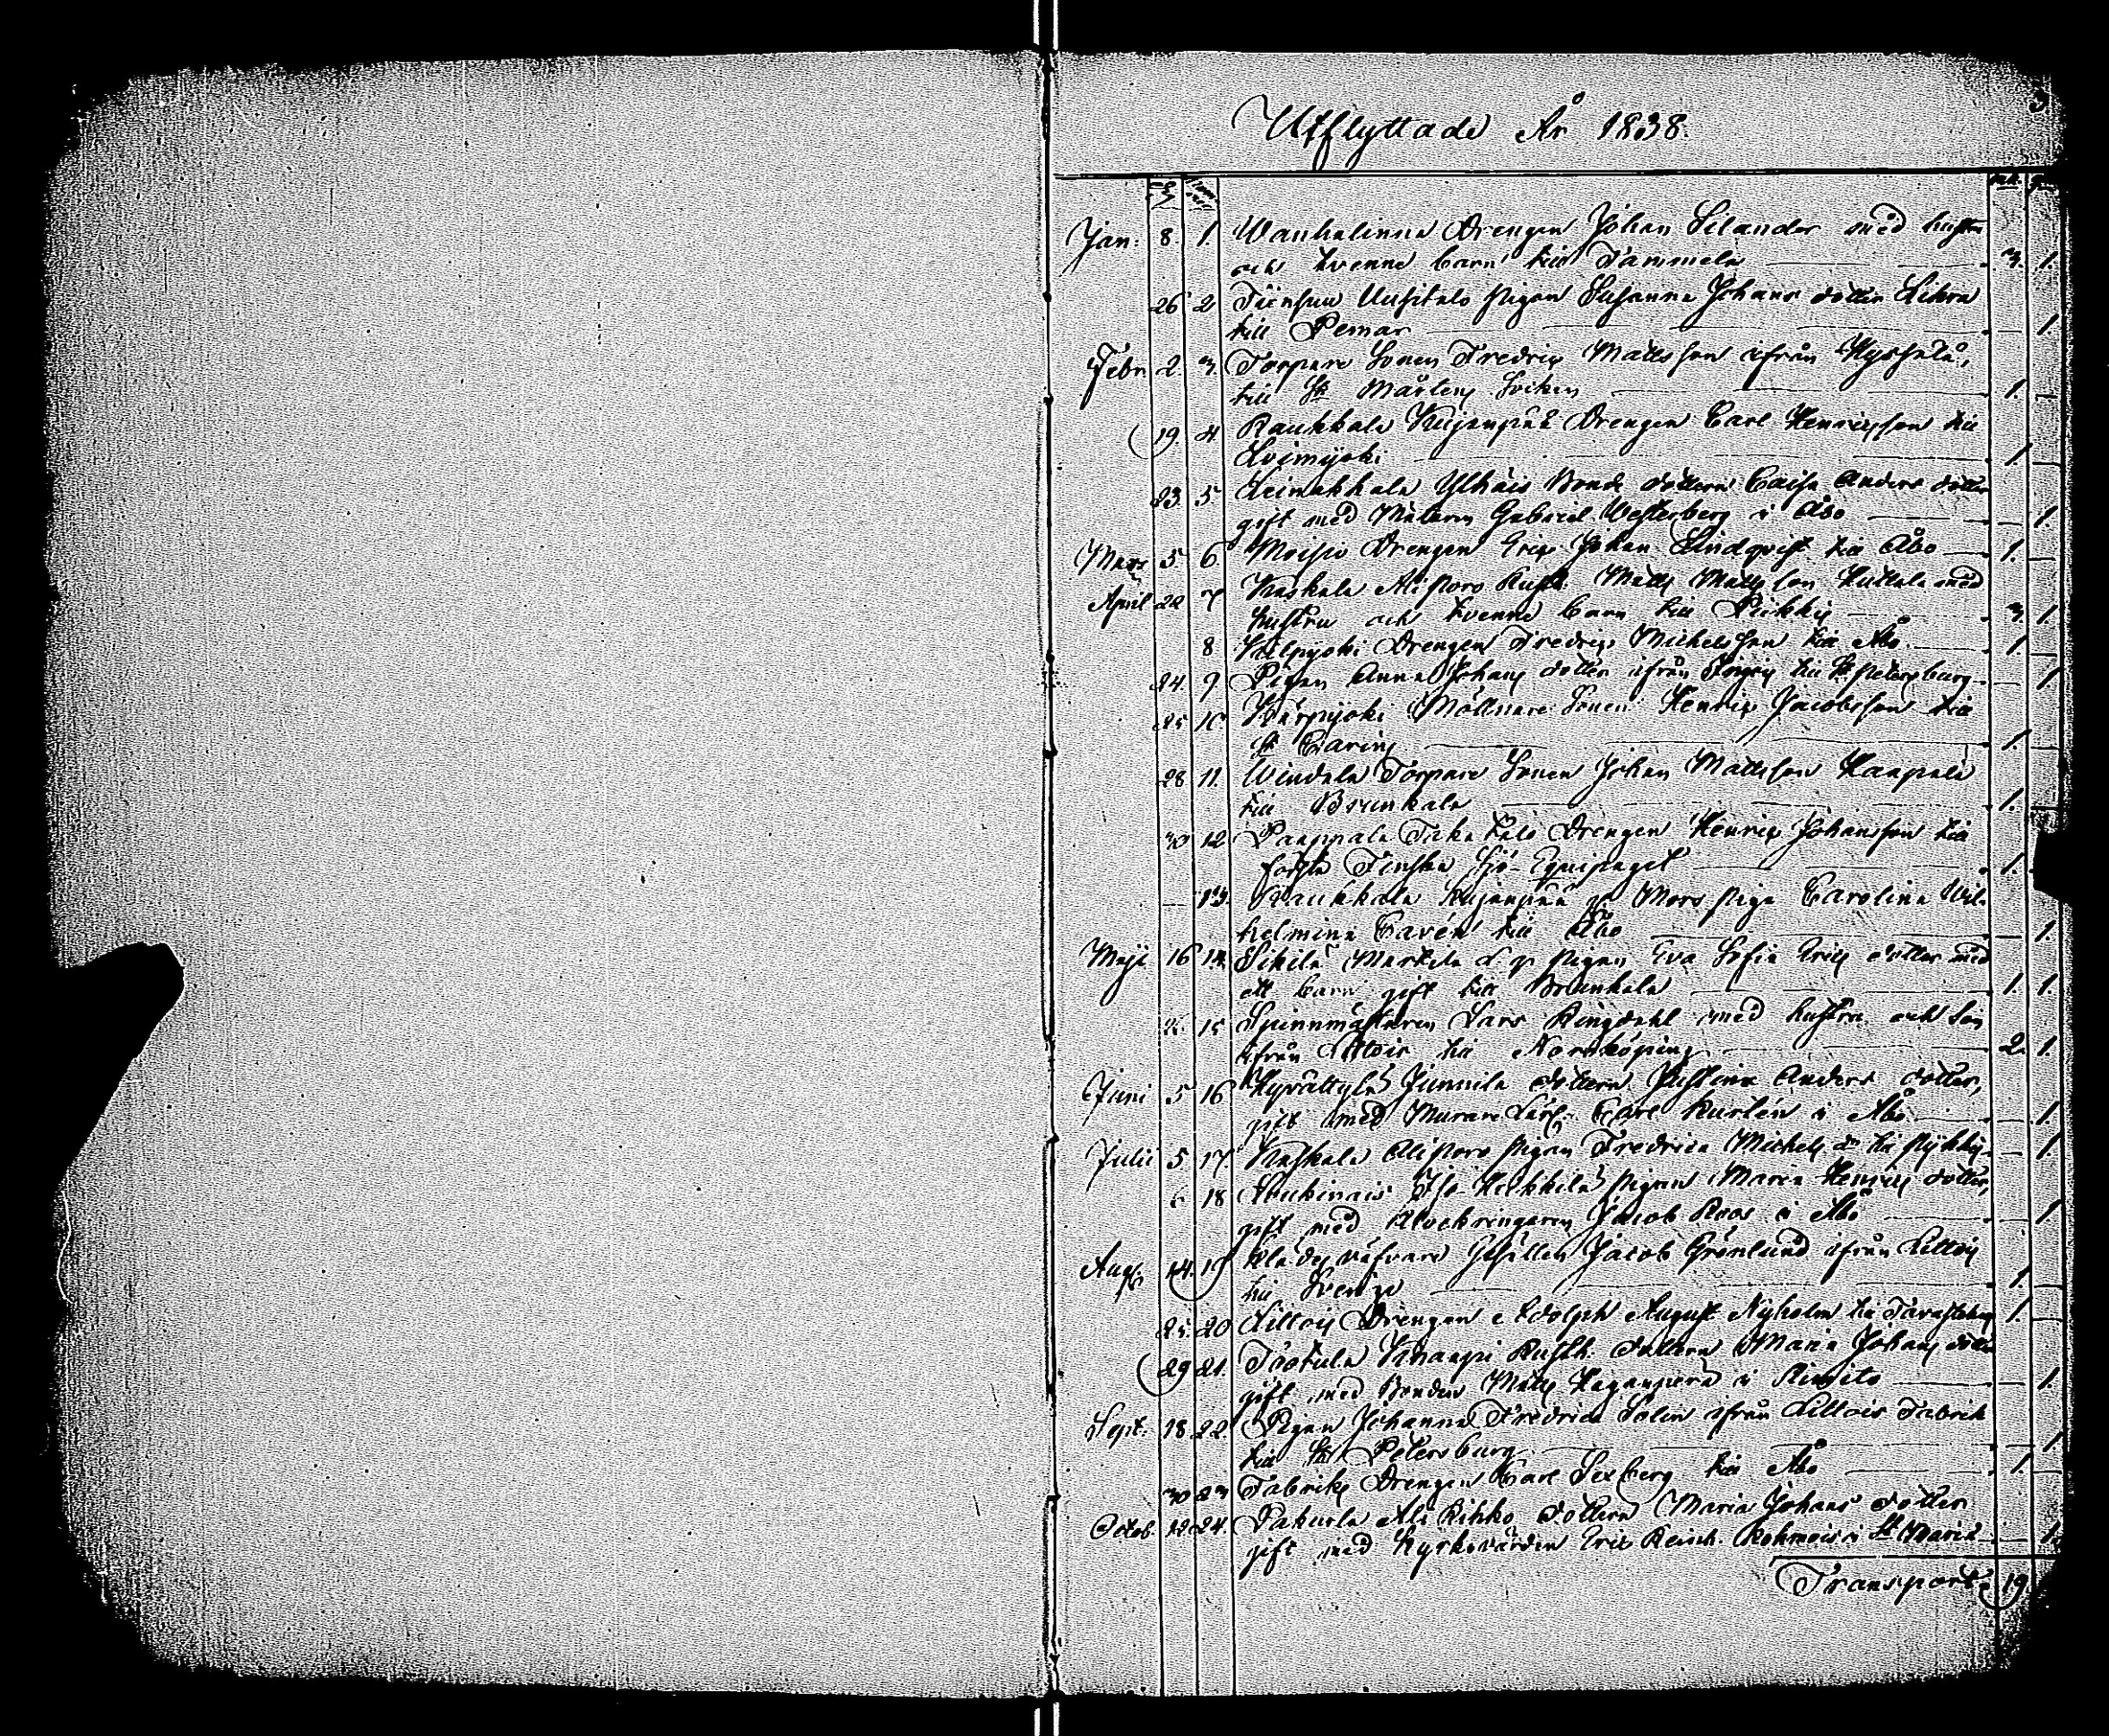 3
Utflyttade År 1838.
Jan: 8. 1. Wanhalinna Drengen Johan Silander med hustru
och tvenne barn till Tammela 3. 1.
26 2 Tiensuu Uusitalo Pigan Susanna Johans dotter
till Pemar 1.
Febr. 2. 3. Torpare Sonen Fredric Mattsson ifrån
till St Mårtens Socken 1.
19. 4. Raukkala Kujanpää Drengen Carl Henricsson till
Loimijoki 1.
23 5 Leinakkala Ylhäis Bonde dottern Caisa Anders dotter
gift med Målaren Gabriel Westerberg i Åbo 1.
Mars 5 6 Moisio Drengen Eric Johan Lindqvist till Åbo 1.
April 22 7 Kaskala Alistaro Rusth. Matts Mattsson med
hustru och tvenne barn till Pickis 3. 1
8 Drengen Fredric Michelsson till Åbo 1
24. 9 Pigan Anna Johans dotter ifrån till St Petersburg 1
25 10 Järpijoki Möllnare Sonen Henric Jacobsson till
St Carins 1.
28 11. Windala Torpare Sonen Johan Mattsson Haapala
till Brunkala 1.
30 12 Paappala Taka talo Drengen Henric Johansson till
första Finska Sjö-Equipaget 1.
13. Raukkala Kujanpää Mors piga Carolina Wil-
helmina Cavén till Åbo 1.
Maji 16 14. Sikilä Markula pigan Eva Sofia Erics dotter med
ett barn gift till Brunkala 1. 1.
15 Spinnmästaren Lars Ringdahl med hustru och son
ifrån Littois till Norrköping 2. 1.
Juni 5 16 Hyvättylä Junnila dottern Justina Anders dotter,
gift med Murare Lärl. Carl Kurlén i Åbo 1.
Julii 5 17. Kaskala Alistaro Pigan Fredrica Michels dr till 1.
6 18 Heikkilä Pigan Maria Henrics dotter,
gift med Klockringaren Jacob Roos i Åbo 1.
Aug. 14. 19 Klädes väfvare Gesällen Jacob Grönlund ifrån Littois
till Sverige 1.
25. 20 Littois Drengen Adolph August Nyholm till Tavastehus 1.
29 21. Tootula Knaapi Rusth. dottern Maria Johans dotter
gift med Bonden Matts i Rimito 1.
Sept. 18. 22 Pigan Johanna Fredrica Solin ifrån Littois Fabrik
till St Petersburg 1.
30 23 Fabriks Drengen Carl Sexberg till Åbo 1.
Octob. 12. 24. Pakurla Ali Rihko dottern Maria Johans dotter
gift med Kyrkovärden Eric i St Marie 1.
Transport 19